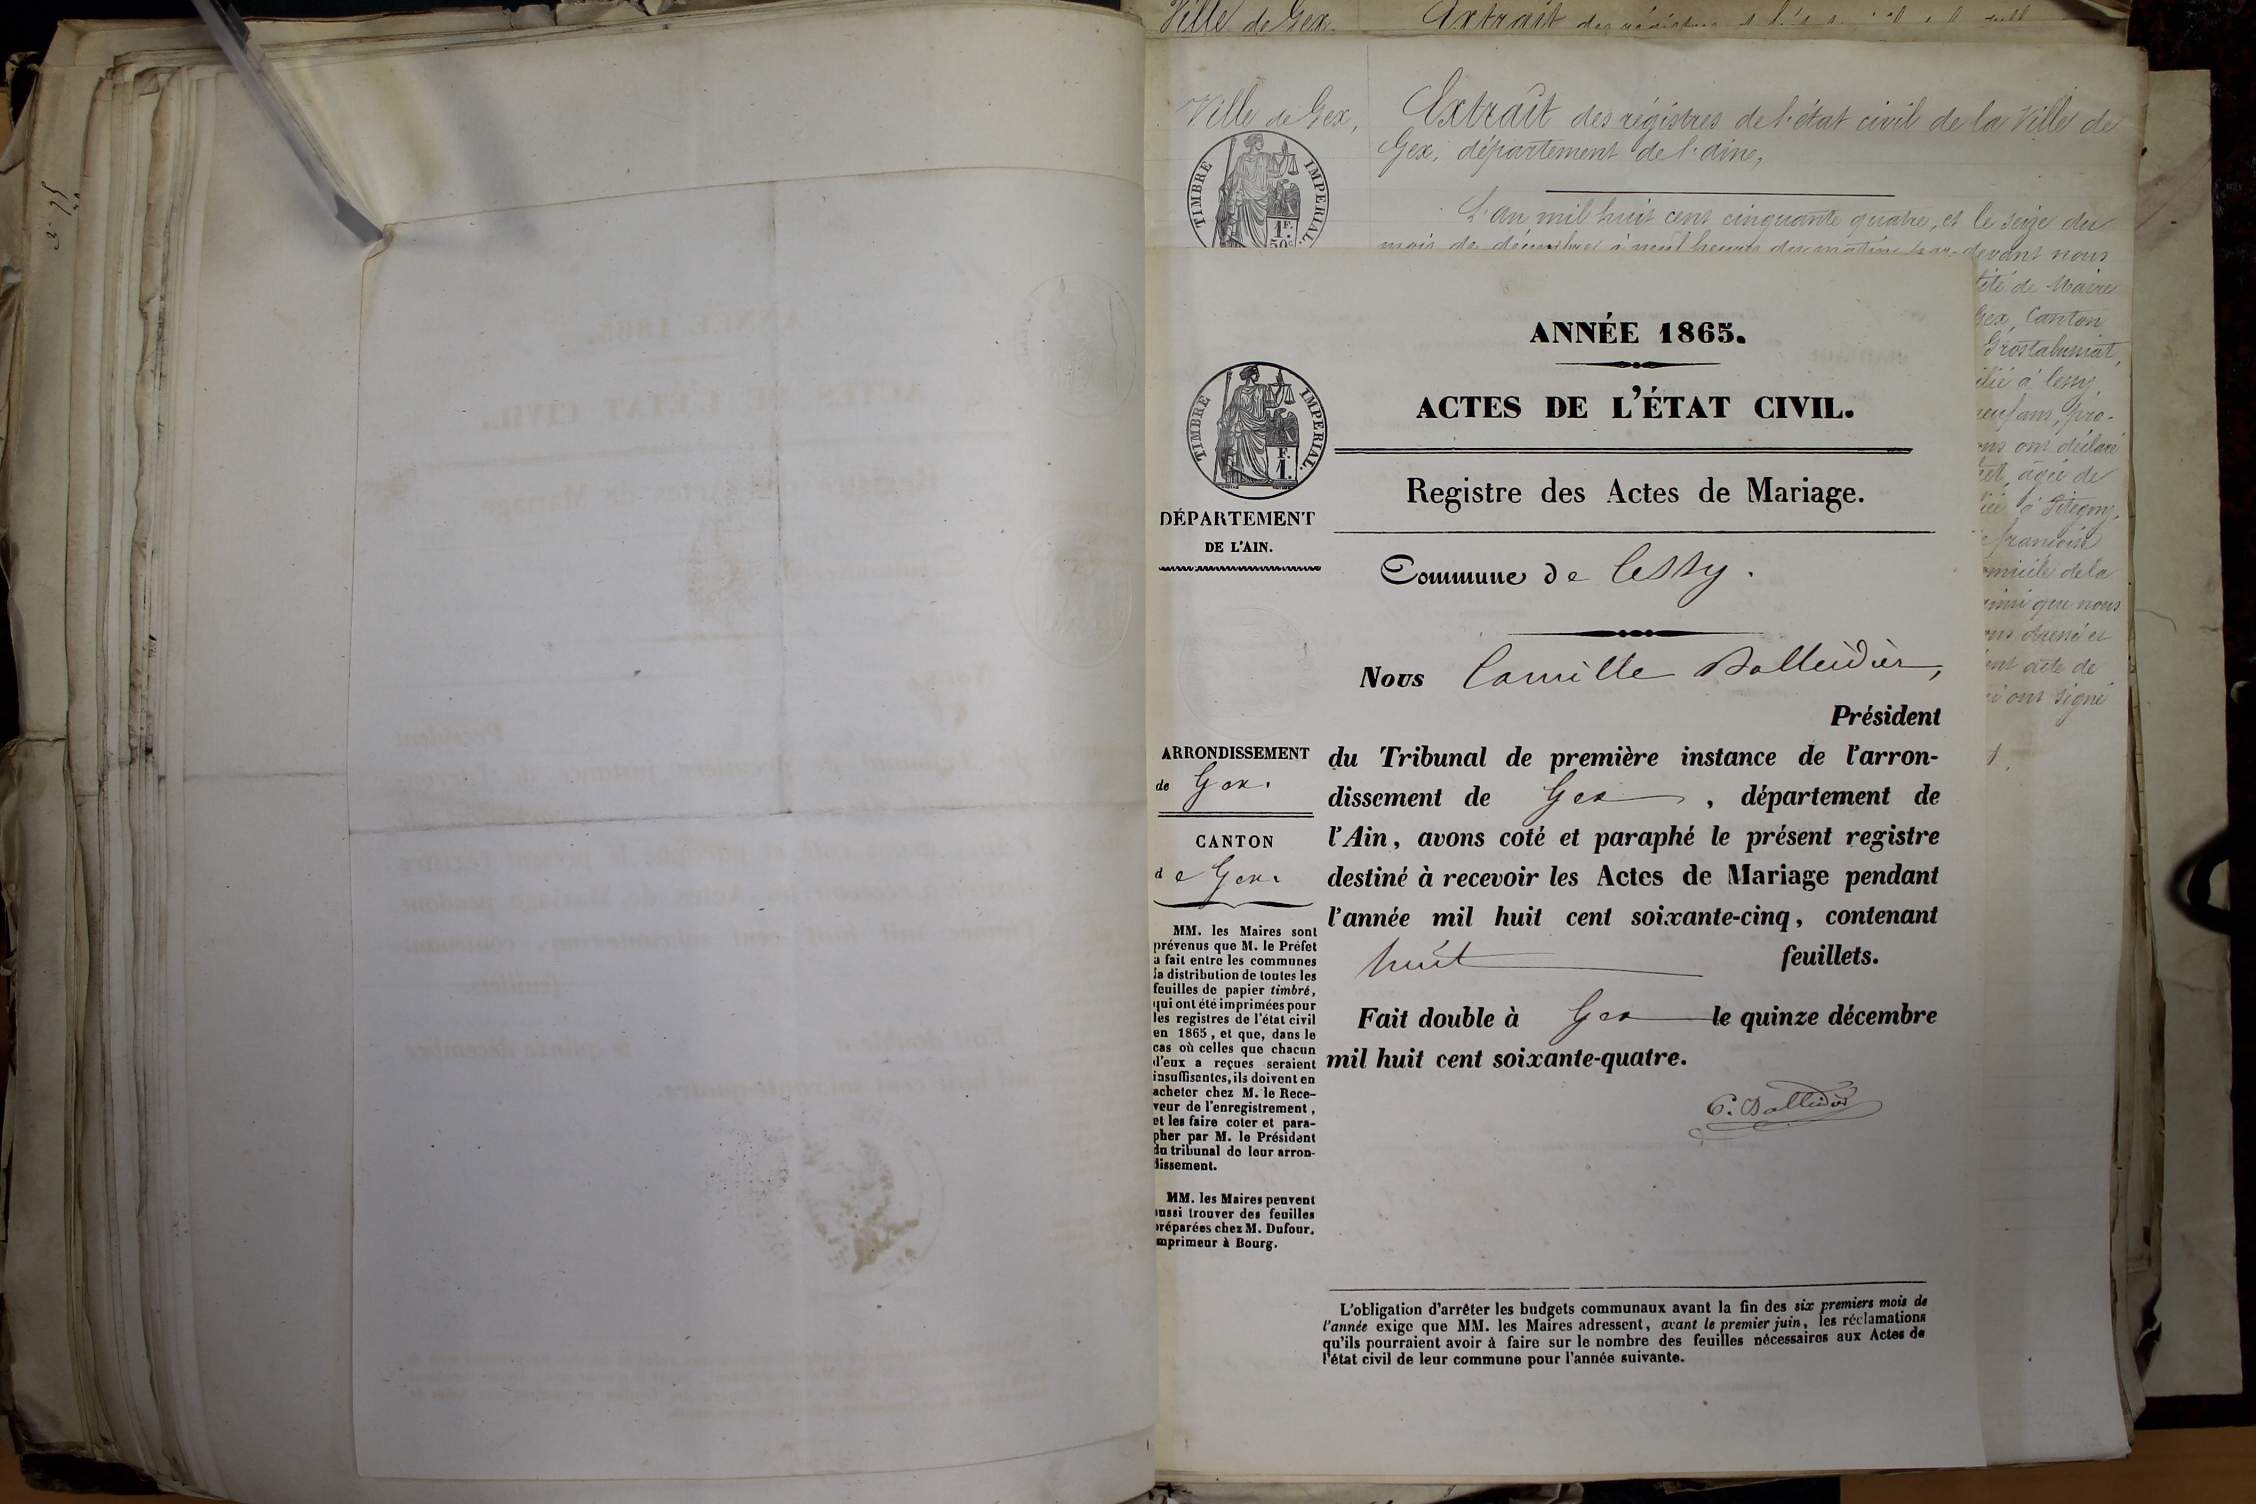 Ville de Gex.
Extrait des
Ville de Gex,
Extrait des régistres de l'état civil de la Ville de
Gex, département de l'ain,
TIMBRE IMPERIAL.
1F.
50c
L'an mil huit cent cinquante quatre, et le seize du
mois de décembre à neuf heures du matin par-devant nous
de Maire
Gex, Canton
à Cessy
pro-
ons ont déclaré
agée de
françoise
domicile de la
ainsi que nous
acte de
ont signé
ANNÉE 1865.
ACTES DE L'ÉTAT CIVIL.
Registre des Actes de Mariage.
TIMBRE IMPERIAL.
F.
1.
DÉPARTEMENT
DE L'AIN.
Commune de Cessy.
Nous Camille Balleidier,
Président
du Tribunal de première instance de l'arron-
dissement de Gex, département de
l'Ain, avons coté et paraphé le présent registre
destiné à recevoir les Actes de Mariage pendant
l'année mil huit cent soixante-cinq, contenant
huit feuillets.
Fait double à Gex le quinze décembre
mil huit cent soixante-quatre.
C. Balleidier
ARRONDISSEMENT
de Gex.
CANTON
de Gex.
MM. les Maires sont
prévenus que M. le Préfet
a fait entre les communes
la distribution de toutes les
feuilles de papier timbré,
qui ont été imprimées pour
les registres de l'état civil
en 1865, et que, dans le
cas où celles que chacun
d'eux a reçues seraient
insuffisantes, ils doivent en
acheter chez M. le Rece-
veur de l'enregistrement,
et les faire coter et para-
pher par M. le Président
du tribunal de leur arron-
dissement.
MM. les Maires peuvent
aussi trouver des feuilles
préparées chez M. Dufour,
imprimeur à Bourg.
L'obligation d'arrêter les budgets communaux avant la fin des six premiers mois de
l'année exige que MM. les Maires adressent, avant le premier juin, les réclamations
qu'ils pourraient avoir à faire sur le nombre des feuilles nécessaires aux Actes de
l'état civil de leur commune pour l'année suivante.